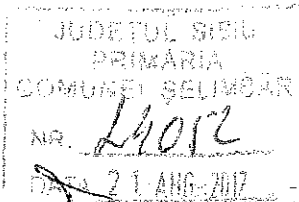 JUDEȚUL SIBIU
PRIMĂRIA
COMUNEI ȘELIMBĂR
NR. 24012
DATA 21. AUG. 2017